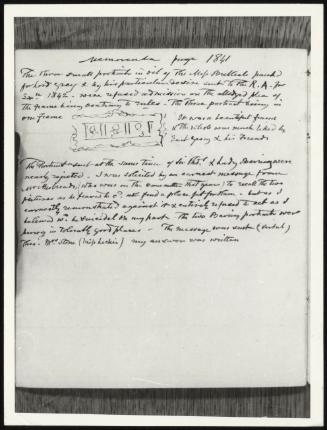 Memoranda page 1841
The three small portraits in oil of the Miss Mitchells painted
for Lord Grey & by his particular desire sent to the R. A. for
Exn 1842 - were refused admission on the alledged plea of
the frame being contrary to rules - The three portraits being in
one frame
It was a beautiful frame
& the whole was much liked by
Earl Grey & his Friends
The Portraits sent at the same time of Sir Thos. & Lady Baring were
nearly rejected - I was solicited by an earnest message from
(who was on the committee that year) to recall the two
pictures as he feared he cd. not find a place fit for them - but as I
earnestly remonstrated against it & entirely refused to act as I
believed wd. be suicidal on my part The two Baring portraits were
hung in tolerably good places - The message was sent (verbal)
thro' Mrs Stone (Miss ) my answer was written